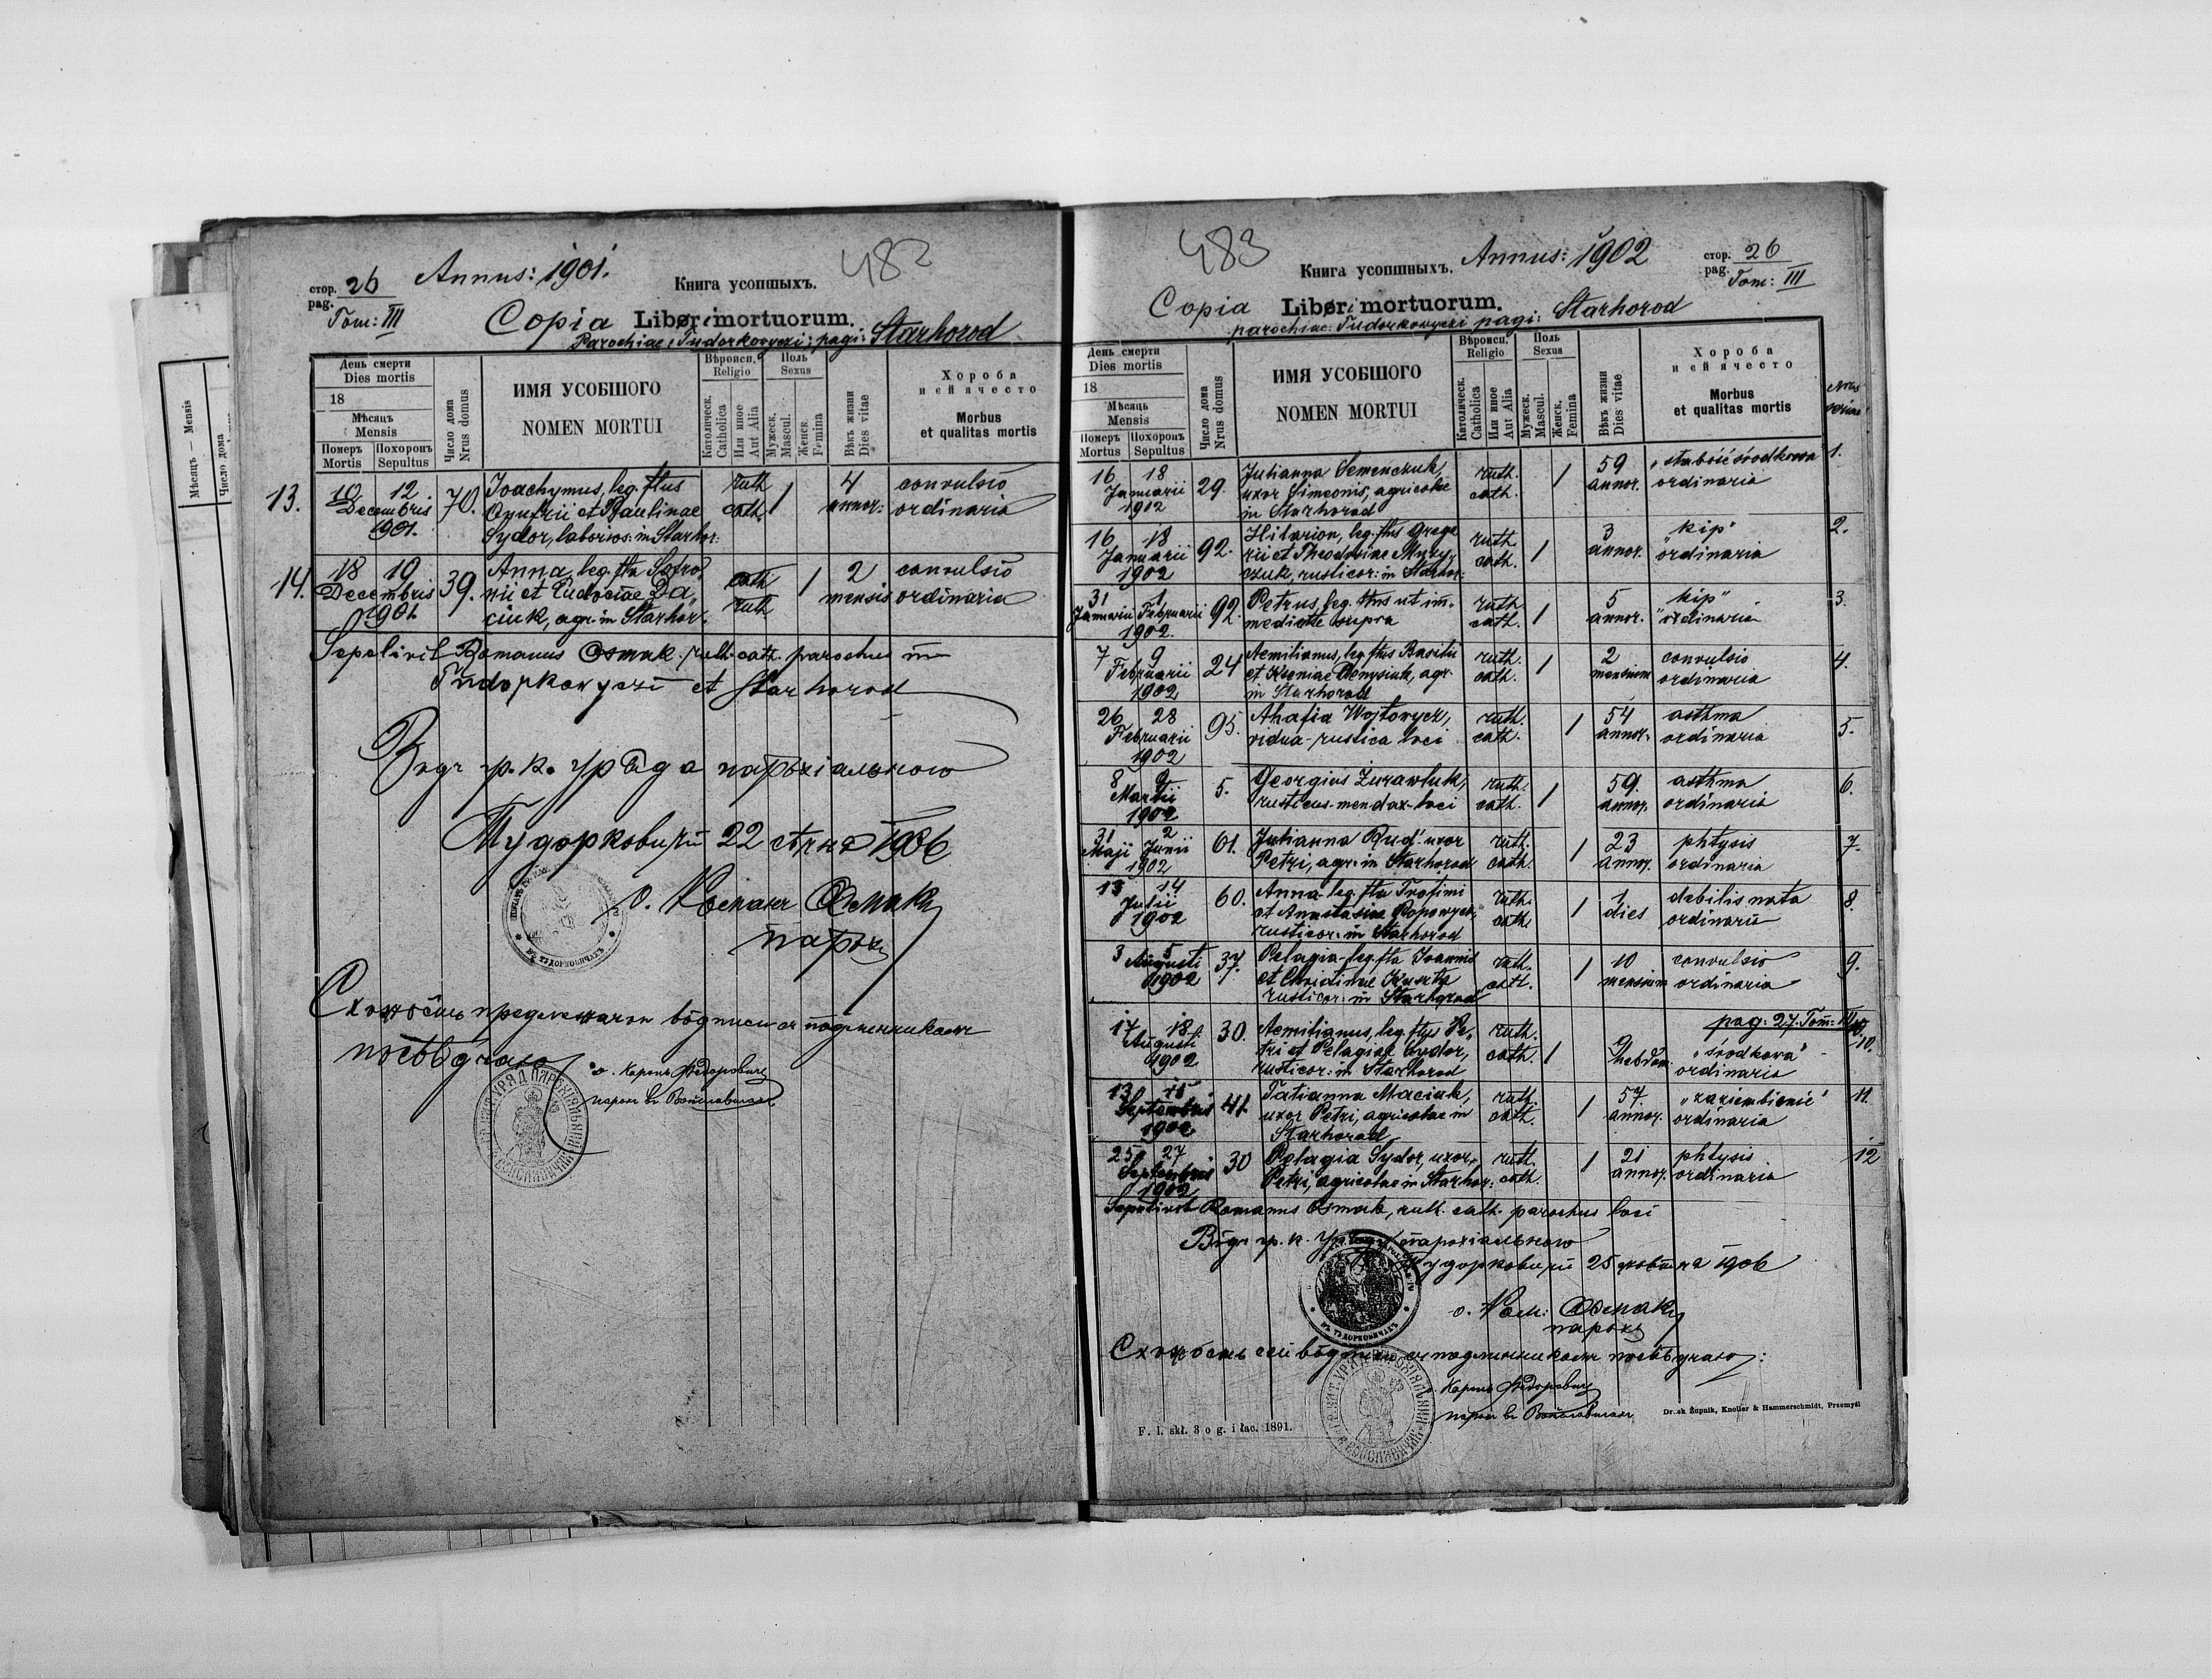 Мѣсяць – Mensis
Число дома
стор. 26
pag.
Tom: III
Annus: 1901.
Книга усопшыхъ.
482
Copia Libri mortuorum.
Parochiae: Tudorkowyczi: pagi: Starhorod
День смерти
Dies mortis
18
Мѣсяцъ
Mensis
Померъ
Mortis
Похоронъ
Sepultus
Число дома
Nrus domus
ИМЯ УСОБШОГО
NOMEN MORTUI
Вѣроисп.
Religio
Католическ.
Catholica
Или иное
Aut Alia
Поль
Sexus
Мужеск.
Mascul.
Женск.
Femina
Вѣкъ жизни
Dies vitae
Хороба
и ей ячесто
Morbus
et qualitas mortis
13. 10 12 70. Joachymus, leg. flius ruth 1 4 convulsio
Decembris Onufrii et Paulinae cath. annor: ordinaria
1901. Sydor, laborios: in Starhor:
14. 18 19 39. Anna, leg. flia Sofro„ cath 1 2 convulsio
Decembris nii et Eudociae Da„ ruth mensis ordinaria
1901 ciuk, agr. in Starhor.
Sepelivit Romanus Osmak ruth. cath. parochus in
Tudorkowyczi et Starhorod
Водъ гр. к. уряда парохіального
Тудорковичи 22 1906
о. Романъ Осмакъ
парохъ
Схожость предлежачои водписи съ подлинникомъ
посвѣдчаю
о. Каролъ Федоровичъ
парох в Войславичахъ
483
Книга усопшныхъ.
Annus: 1902
стор. 26
pag.
Tom: III
Copia Libri mortuorum.
parochiae: Tudorkowyczi pagi: Starhorod
День смерти
Dies mortis
18
Мѣсяць
Mensis
Померъ
Mortus
Похоронъ
Sepultus
Число дома
Nrus domus
ИМЯ УСОБШОГО
NOMEN MORTUI
Вѣроисп.
Religio
Католическ.
Catholica
Или иное
Aut Alia
Поль
Sexus
Мужеск.
Mascul.
Женск.
Femina
Вѣкъ жизни
Dies vitae
Хороба
и ей ячесто
Morbus
et qualitas mortis
Nrus
16 18 29. Julianna Semenczuk, ruth. 1 59 „słabość środkowa 1.
Januarii uxor Simeonis, agricolae cath. annor. ordinaria
1902 in Starhorod
16 18 92. Hilarion, leg. flius Grego ruth. 1 3 „kip" 2.
Januarii rii et Theodosiae Muzy„ cath. annor. ordinaria
1902 czuk, rusticor: in Starhor:
31 1 92. Petrus, leg. flius ut im„ ruth. 1 5 „kip" 3.
Januarii Februarii mediatte supra cath. annor. ordinaria
1902.
7 9 24 Aemilianus, leg flius Basilii ruth. 1 2 convulsio 4.
Februarii et Xseniae Denysiuk, agr. cath. mensium ordinaria
1902 in Starhorod
26 28 95. Ahafia Wojtowycz, ruth. 1 54 asthma 5.
Februarii vidua-rustica loci cath. annor. ordinaria
1902
8 9 5. Georgius Żurawluk, ruth. 1 59. asthma 6.
Martii rusticus-mendax-loci cath. annor. ordinaria
1902
31 2 61. Julianna Rud' uxor ruth. 1 23 phtysis 7.
Maji Junii Petri, agr. in Starhorod cath. annor. ordinaria
1902
13 14 60. Anna leg. flia Trofimi ruth. 1 1 debilis nata 8.
Julii et Anastasiae Popowycz, cath dies ordinaria
1902 rusticor. in Starhorod
3 5 37. Pelagia-leg. flia Joannis ruth. 1 10 convulsio 9.
Augusti et Christinae cath. mensium ordinaria
1902 rusticor: in Starhgrad
pag: 27. Tom: III
17 18 30. Aemilianus, leg. flius Pe„ ruth. 1 9 „środkowa" 10.
Augusti tri et Pelagiae Sydor, cath. hebdom. ordinaria
1902 rusticor: in Starhorod
13 15 41. Tatianna Maciuk, ruth. 1 57. „zaziembienie" 11.
Septembris uxor Petri, agricolae in cath. annor. ordinaria
1902 Starhorod
25 27 30 Pelagia Sydor, uxor ruth. 1 21 phtysis 12
Septembris Petri, agricolae in Starhor: cath. annor. ordinaria
1902
Sepelivit Romanus Osmak, ruth. cath. parochus loci
Водъ гр. к. уряду парохіального
Тудорковичи 25 жовтня 1906
о. Ром: Осмакъ
парохъ
ВЪ ТУДОРКОВИЧАХЪ
Схожость сеи водписи съ подлинникомъ посвѣдчаю:
о. Каролъ Федоровичъ
парох в Войславичахъ
F. l. skł. 3 o g. i łac. 1891.
Druk Żupnik, Knoller & Hammerschmidt, Przemyśl